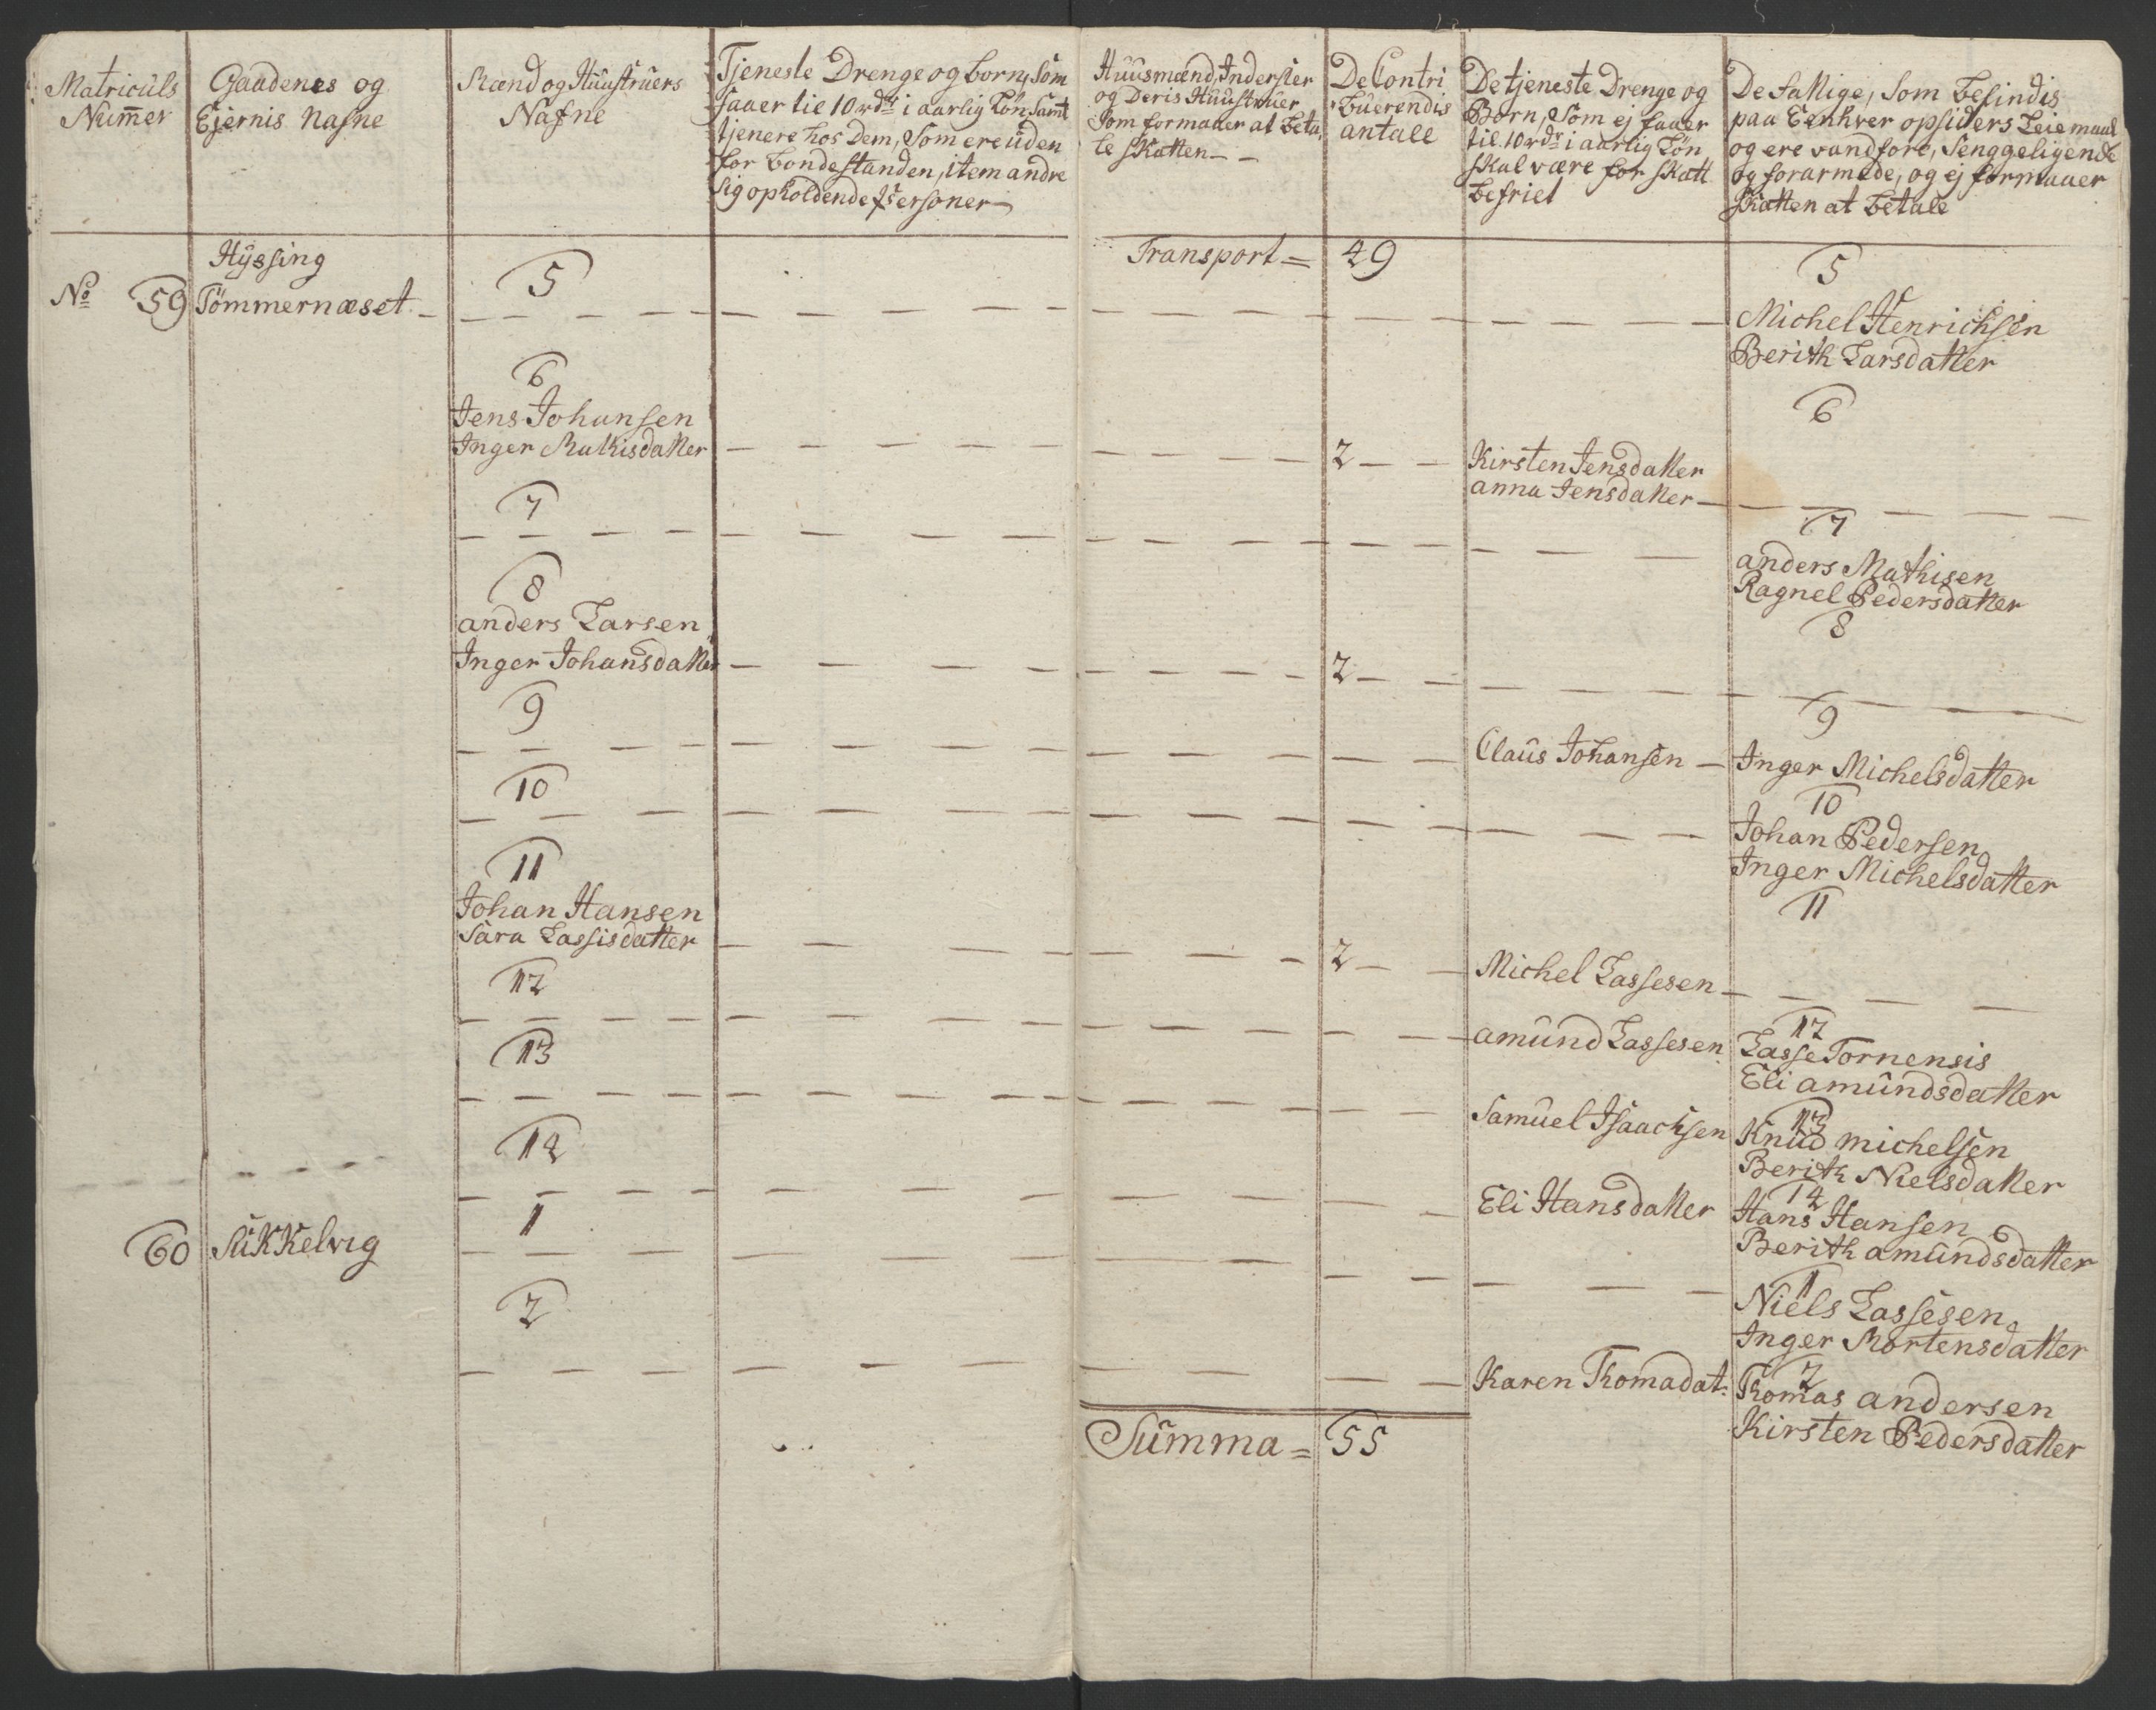 Matriculs
Nummer
Gaadenes og
Ejernis Nafne
Mænd og Huustruers
Nafne
Tjeneste Drenge og børn, som
faaer til 10 rdr i aarlig Løn, samt
tjenere hos Dem, som ere uden
for bondestanden, item andre
sig opholdende Personer
Huusmænd, Inderster
og Deris Huustruer
som formaaer at beta,
te skatten
De Contri
buerendis
antall
De tjeneste Drenge og
Børn, som ej faaer
til 10 rdr i aarlig Løn
skal være for skatt
befriet
De fattige, som befindis
paa Eenhver opsiders Leiemaal
og ere vandføre, senggeligende
og forarmede, og ej formaaer
skatten at betale
Hyssing
Transport = 49
No 59 Tömmernæset
5
5
Michel Henrichsen
Berith Larsdatter
6
Jens Johansen
Inger Mathisdatter
2
Kirsten Jensdatter
anna Jensdatter
6
7
7
anders Mathisen
Ragnel Pedersdatter
8
anders Larsen
Inger Johansdatter
2
8
9
Claus Johansen
9
Inger Michelsdatter
10
10
Johan Pedersen
Inger Michelsdatter
11
Johan Hansen
Sara Lassisdatter
2
Michel Lassesen
11
12
amund Lassesen
12
Lasse Tornensis
Eli amundsdatter
13
Samuel Isaachsen
13
Knud michelsen
Berith Nielsdatter
14
Eli Hansdatter
14
Hans Hansen
Berith amundsdatter
60 Sukkelvig
1
1
Niels Lassesen
Inger Mortensdatter
2
Karen Thomadat:
2
Thomas andersen
Kirsten Pedersdatter
Summa = 55